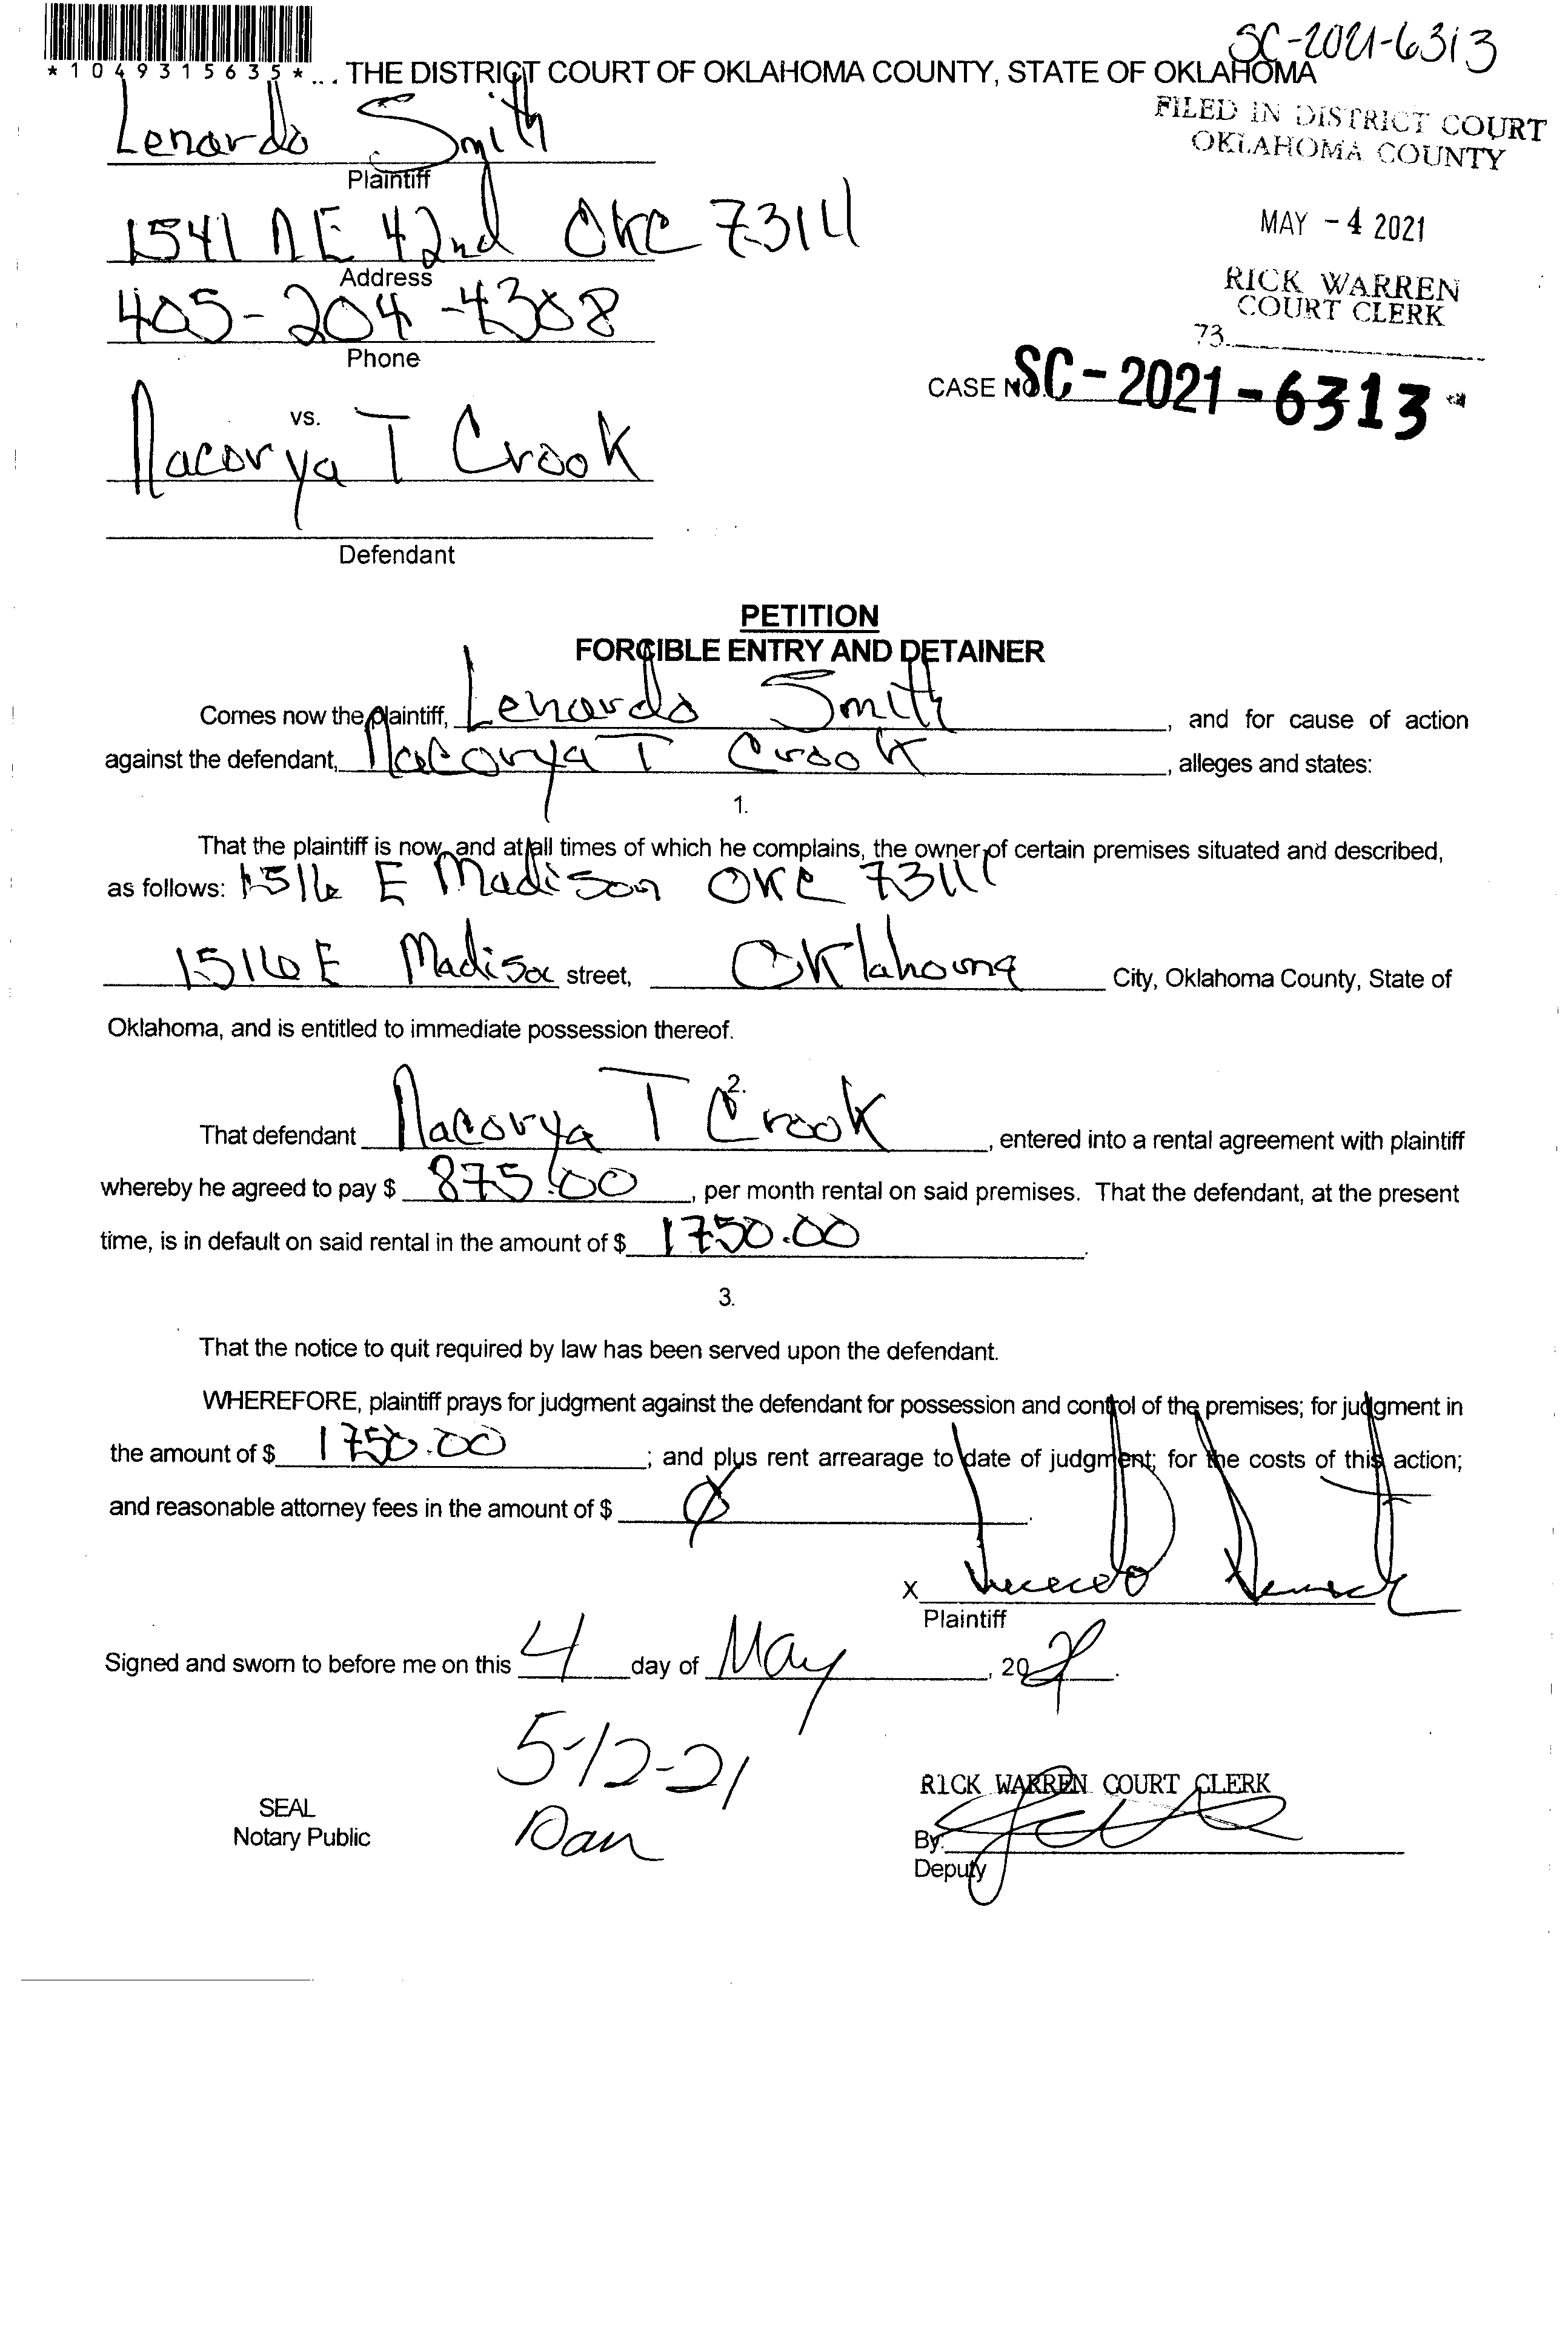 SC-2021-6313
*1049315635*
... THE DISTRICT COURT OF OKLAHOMA COUNTY, STATE OF OKLAHOMA
FILED IN DISTRICT COURT
OKLAHOMA COUNTY
MAY -4 2021
RICK WARREN
COURT CLERK
73
Lenardo Smith
Plaintiff
1541 NE 42nd OKC 73111
Address
405-204-4308
Phone
CASE NO. SC-2021-6313
vs.
Nacorya T Crook
Defendant
PETITION
FORCIBLE ENTRY AND DETAINER
Comes now the plaintiff, Lenardo Smith, and for cause of action
against the defendant, Nacorya T Crook, alleges and states:
1.
That the plaintiff is now, and at all times of which he complains, the owner of certain premises situated and described,
as follows: 1516 E Madison OKC 73111
1516 E Madison street, Oklahoma City, Oklahoma County, State of
Oklahoma, and is entitled to immediate possession thereof.
2.
That defendant Nacorya T Crook, entered into a rental agreement with plaintiff
whereby he agreed to pay $ 875.00, per month rental on said premises. That the defendant, at the present
time, is in default on said rental in the amount of $ 1750.00.
3.
That the notice to quit required by law has been served upon the defendant.
WHEREFORE, plaintiff prays for judgment against the defendant for possession and control of the premises; for judgment in
the amount of $ 1750.00; and plus rent arrearage to date of judgment; for the costs of this action;
and reasonable attorney fees in the amount of $ Ø.
X
Plaintiff
Signed and sworn to before me on this 4 day of May, 2021.
5-12-21
Dan
SEAL
Notary Public
RICK WARREN COURT CLERK
By:
Deputy